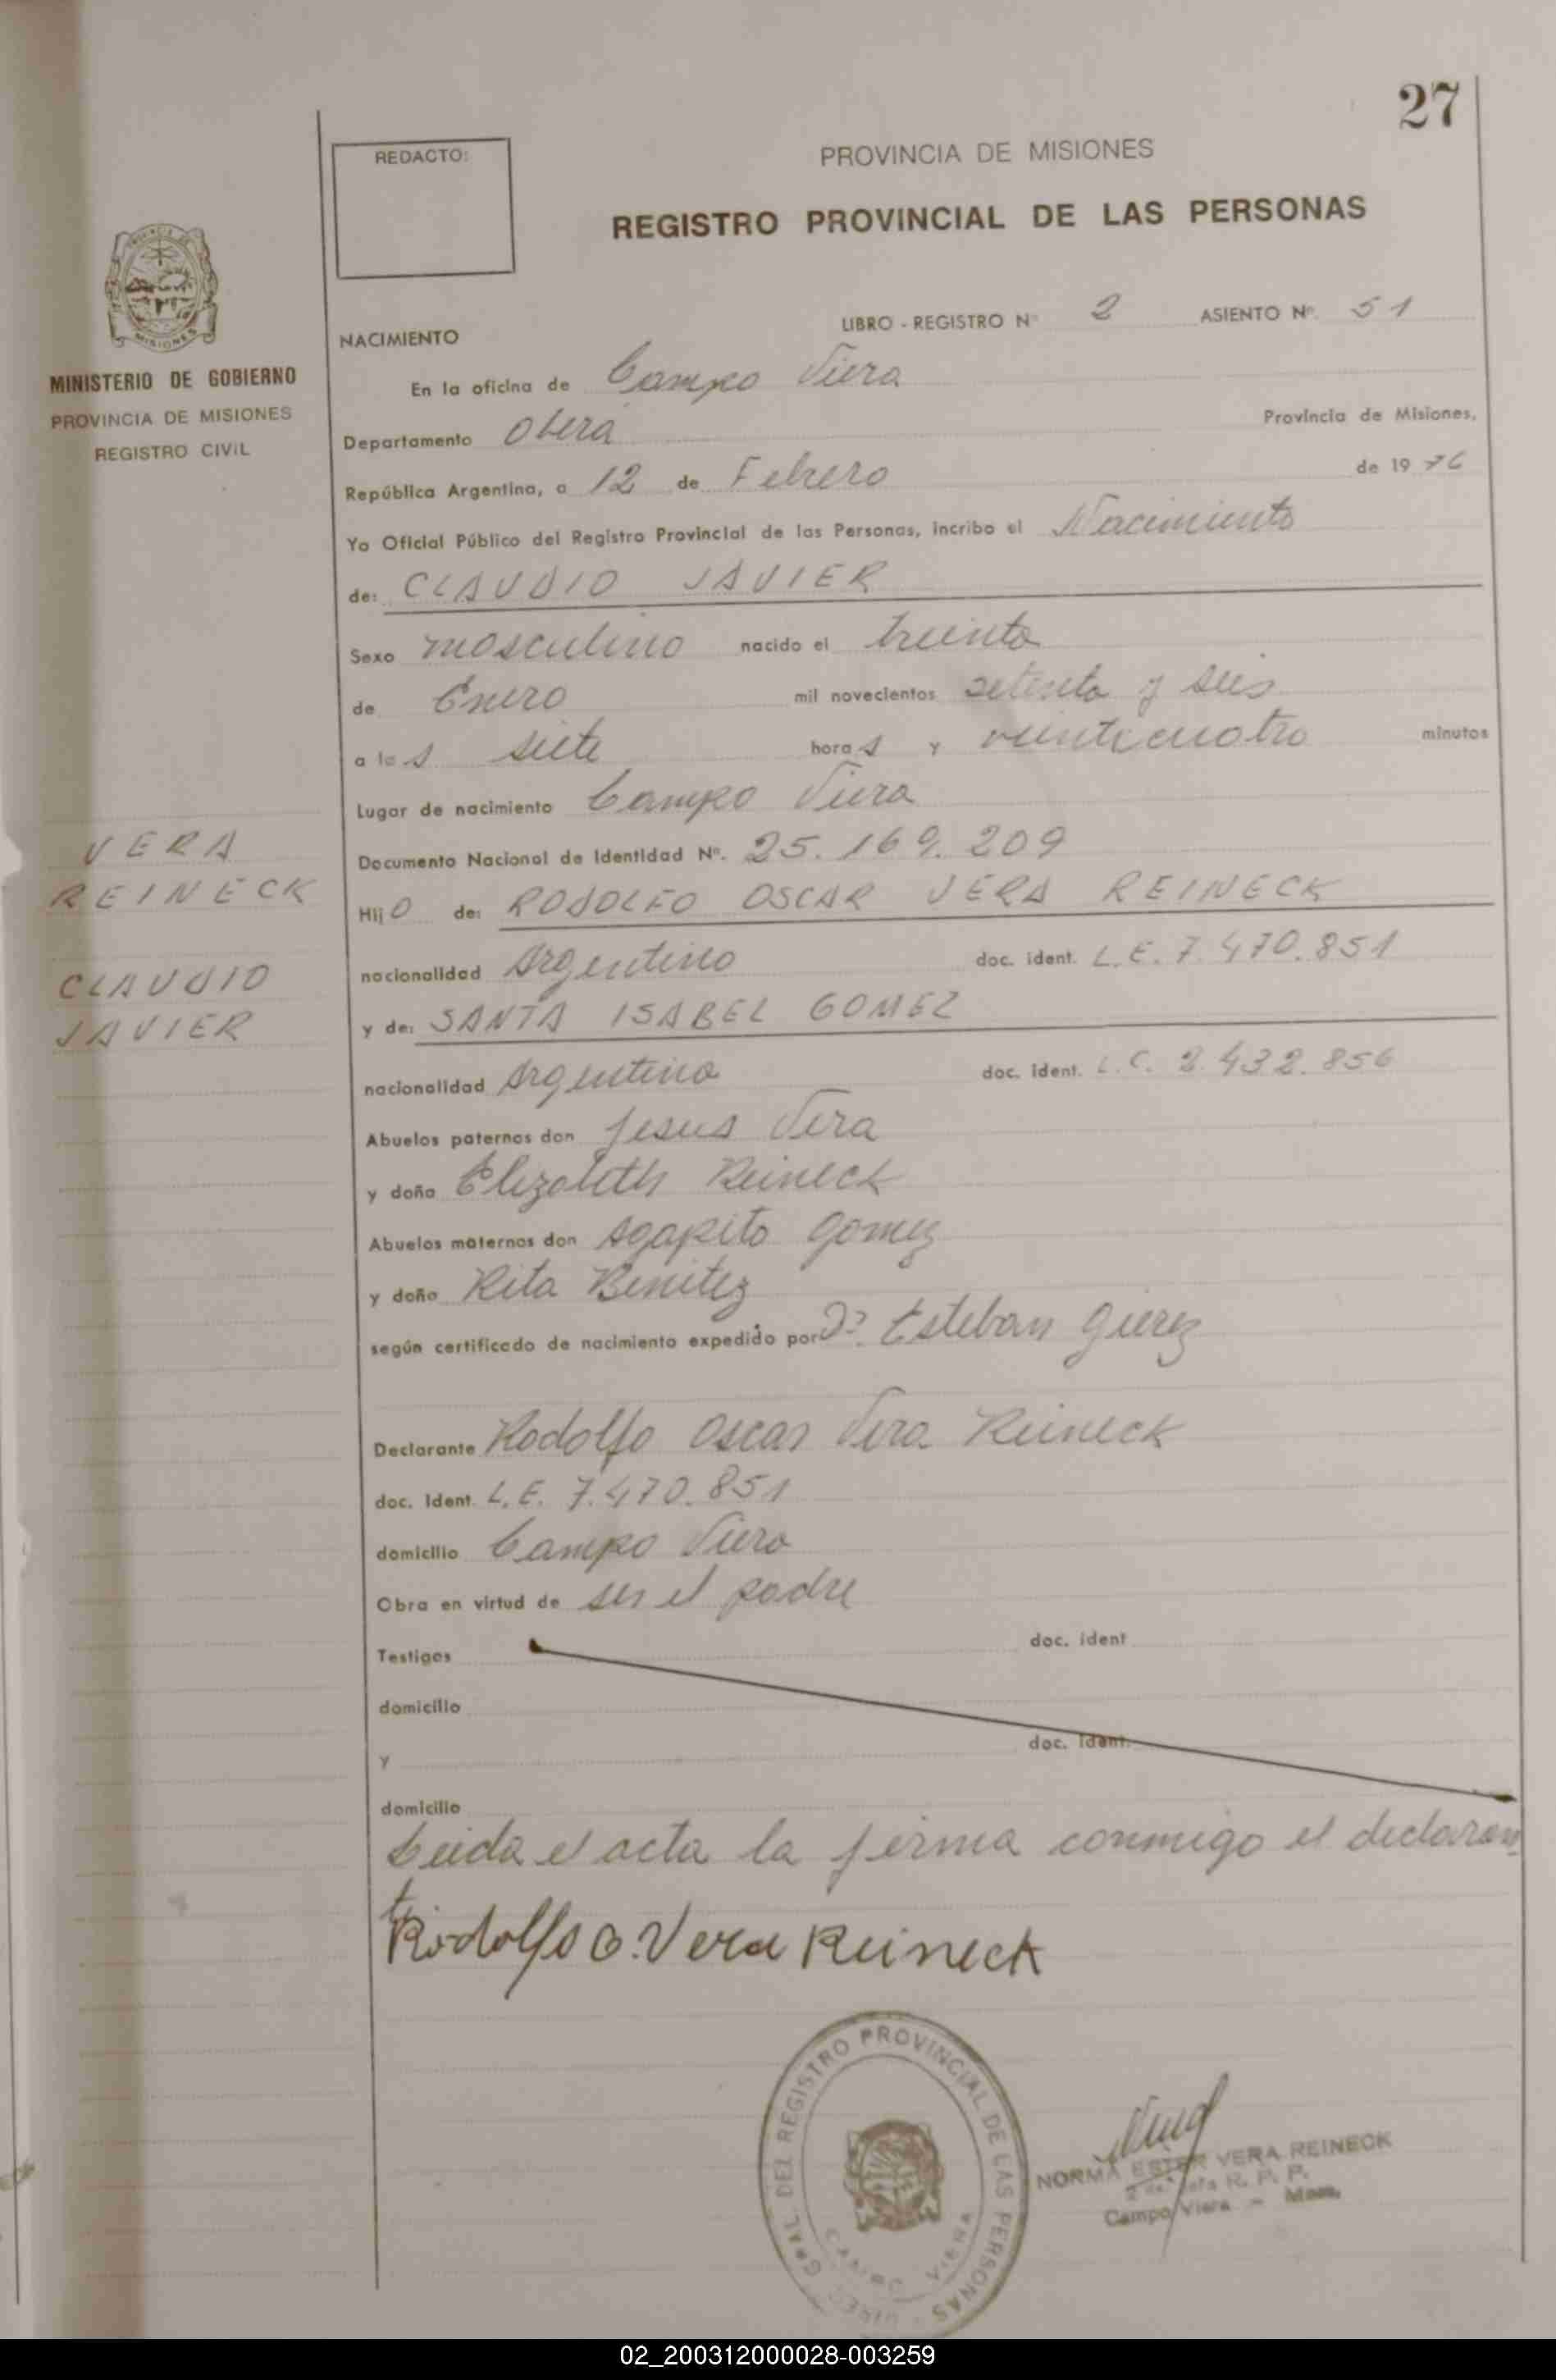 27
REDACTO:
PROVINCIA DE MISIONES
REGISTRO PROVINCIAL DE LAS PERSONAS
MISIONES
MINISTERIO DE GOBIERNO
PROVINCIA DE MISIONES
REGISTRO CIVIL
LIBRO - REGISTRO Nº 2 ASIENTO Nº. 51
NACIMIENTO
En la oficina de Campo Viera
Departamento Oberá Provincia de Misiones,
República Argentina, a 12 de Febrero de 1976
Yo Oficial Público del Registro Provincial de las Personas, incribo el Nacimiento
de: CLAUDIO JAVIER
Sexo masculino nacido el treinta
de Enero mil novecientos setenta y seis
a las siete horas y veinticuatro minutos
Lugar de nacimiento Campo Viera
Documento Nacional de Identidad Nº. 25.169.209
VERA
REINECK
CLAUDIO
JAVIER
Hijo de: RODOLFO OSCAR VERA REINECK
nacionalidad Argentino doc. ident. L.E. 7.470.851
y de: SANTA ISABEL GOMEZ
nacionalidad Argentina doc. ident. L.C. 2.432.856
Abuelos paternos don Jesus Vera
y doña Elizabeth Reineck
Abuelos maternos don Agapito Gomez
y doña Rita Benitez
según certificado de nacimiento expedido por Dr. Esteban Gierez
Declarante Rodolfo Oscar Vera Reineck
doc. Ident. L.E. 7.470.851
domicilio Campo Viera
Obra en virtud de ser el padre
Testigos doc. ident
domicilio
y doc. ident.
domicilio
Leida el acta la firma conmigo el declaran
te
Rodolfo O. Vera Reineck
GRAL. DEL REGISTRO PROVINCIAL DE LAS PERSONAS
CAMPO VIERA
NORMA ESTER VERA REINECK
Jefa R. P. P.
Campo Viera - Mnes.
02_200312000028-003259